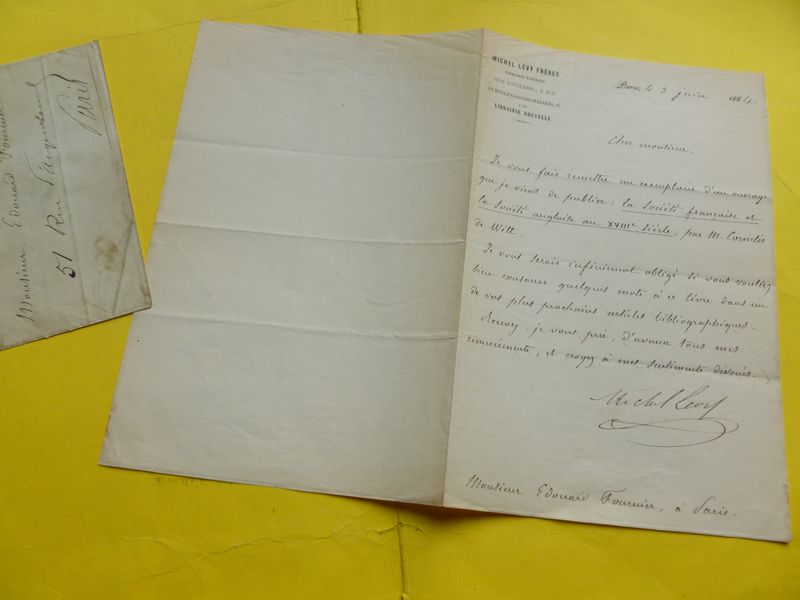 Monsieur Edouard Fournier
51 Rue d'Argenteuil
Paris
MICHEL LÉVY FRÈRES
LIBRAIRES ÉDITEURS
RUE VIVIENNE, 2 BIS
ET BOULEVARD DES ITALIENS, 15
A LA
LIBRAIRIE NOUVELLE
Paris, le 3 juin 1864.
Cher monsieur,
Je vous fais remettre un exemplaire d'un ouvrage
que je viens de publier : la Société française et
la Société anglaise au XVIIIe Siècle, par M. Cornélis
de Witt.
Je vous serais infiniment obligé si vous vouliez
bien consacrer quelques mots à ce livre dans un
de vos plus prochains articles bibliographiques.
Recevez, je vous prie, d'avance tous mes
remerciements, et croyez à mes sentiments dévoués.
Michel Lévy
Monsieur Edouard Fournier, à Paris.